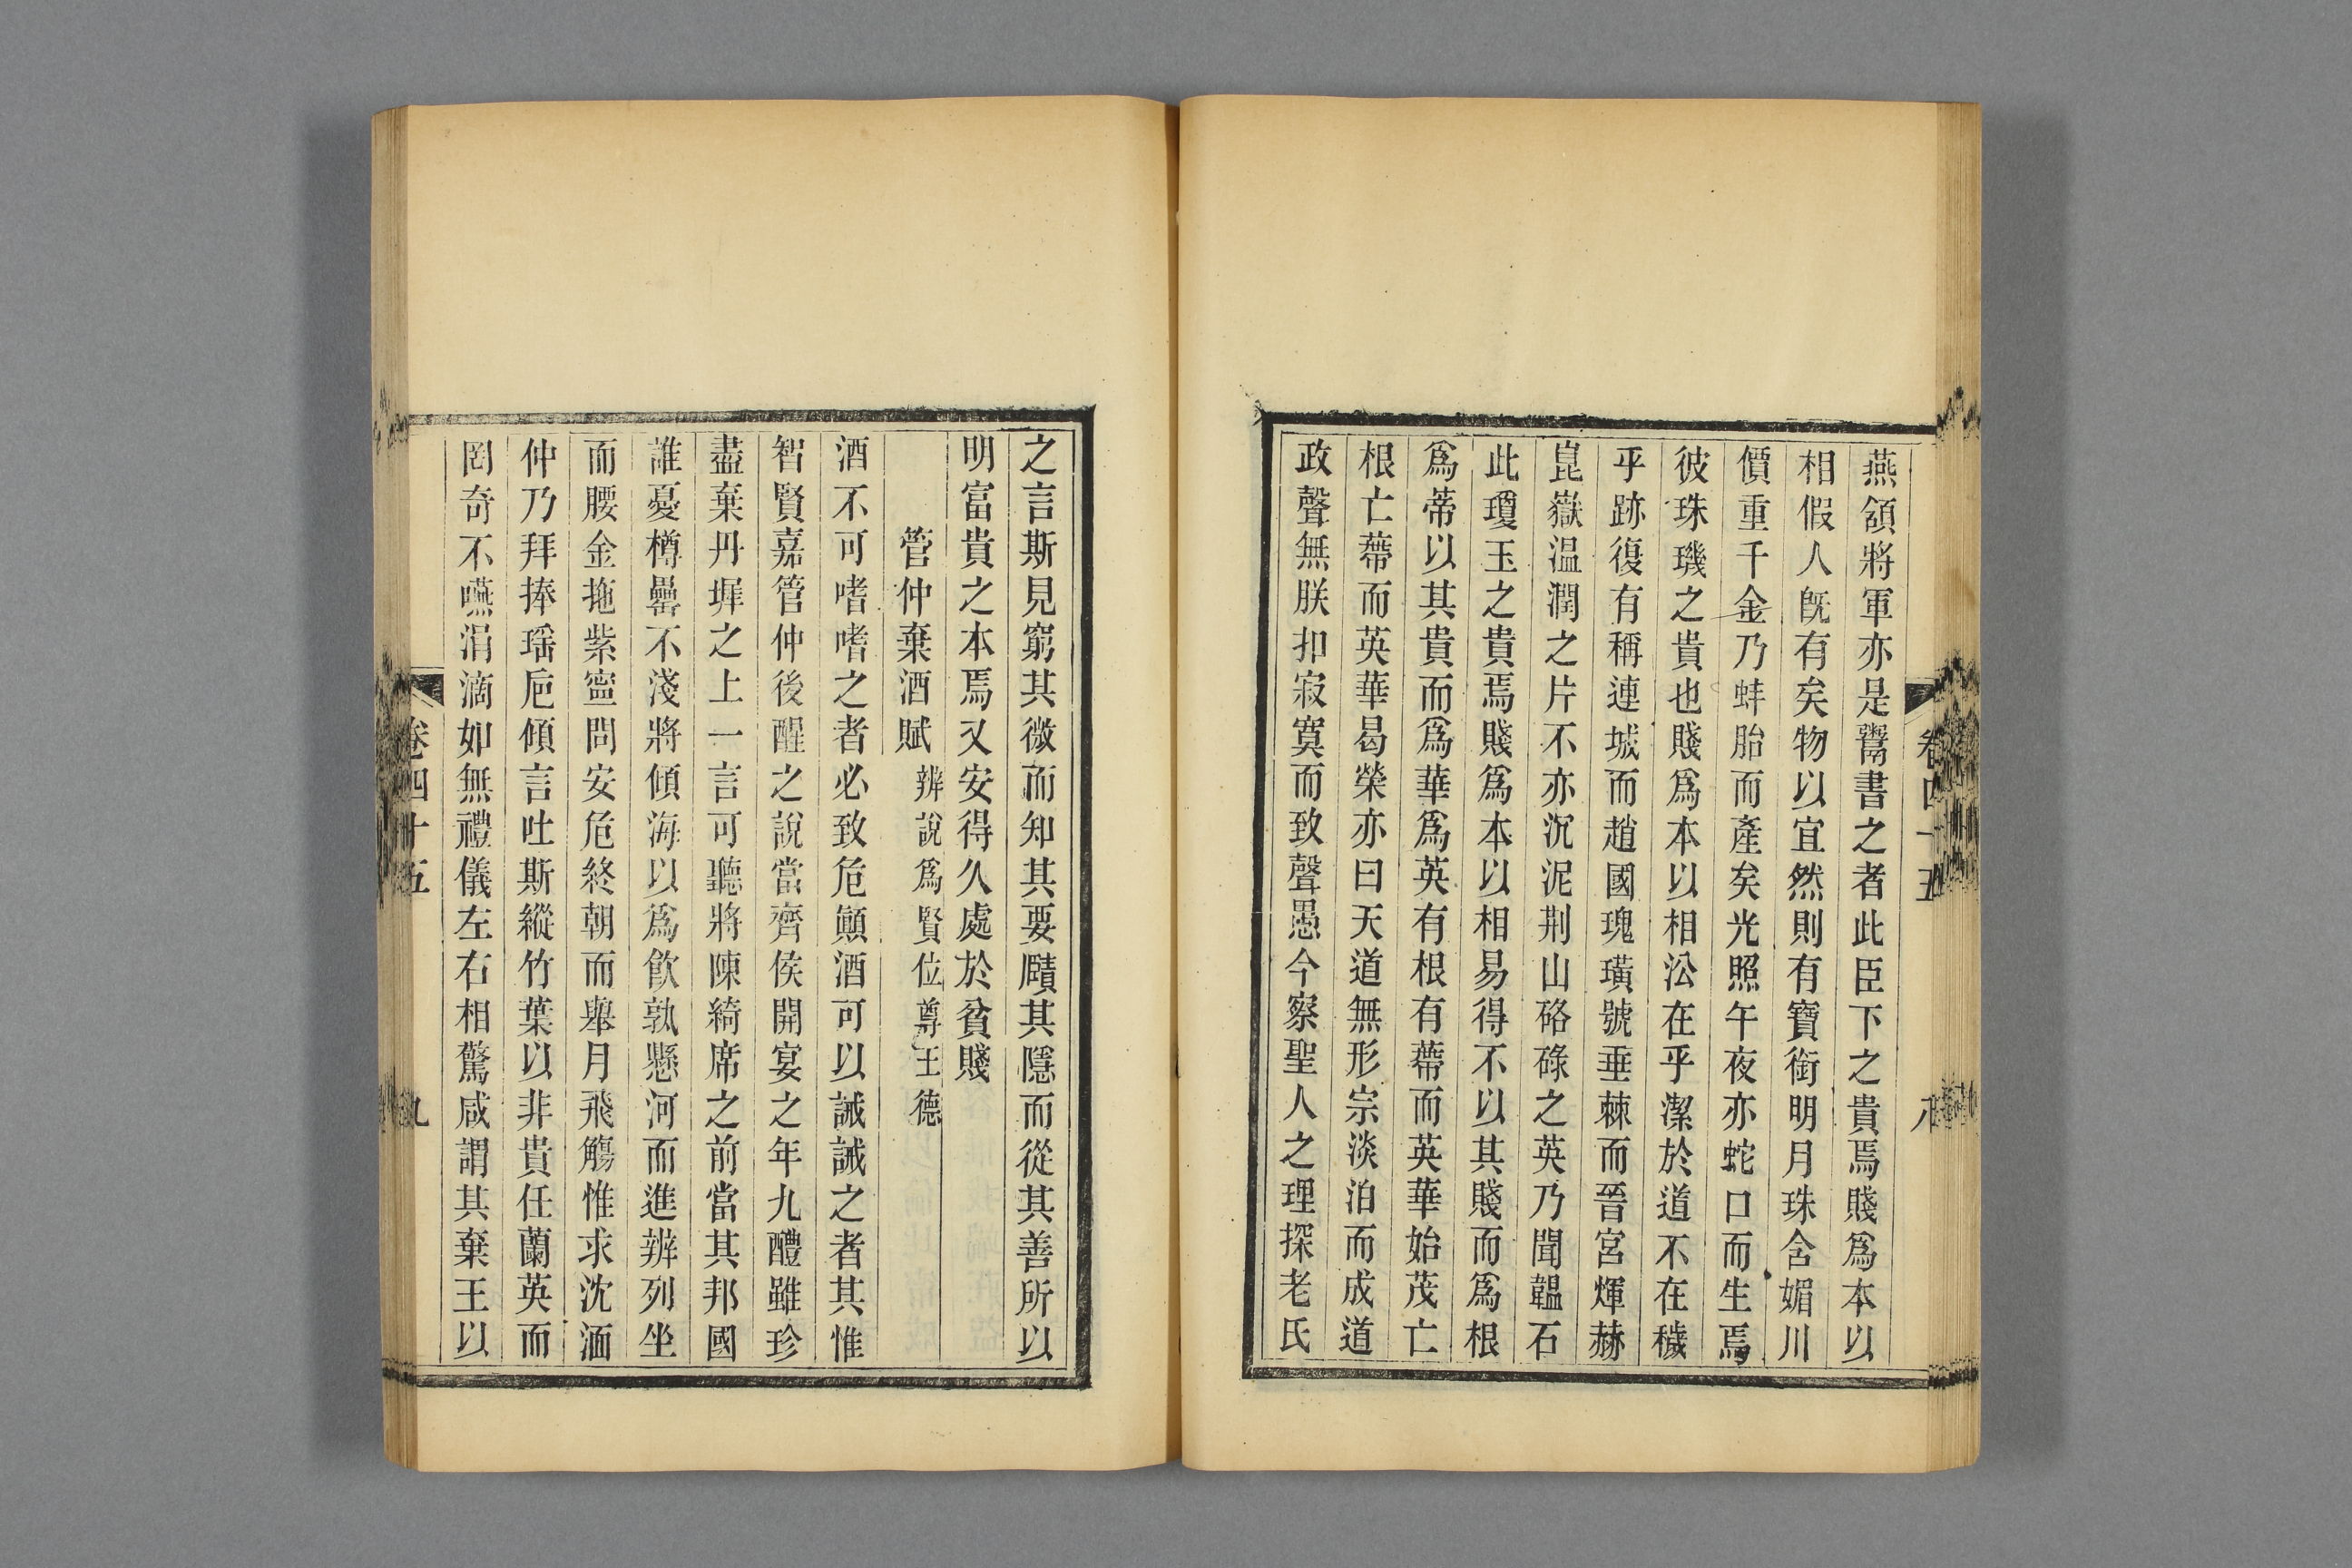 燕頷將軍亦是鬻書之者此臣下之貴焉賤爲本以
相假人旣有矣物以宜然則有寶銜明月珠含媚川
價重千金乃蚌胎而產矣光照午夜亦蛇口而生焉
彼珠璣之貴也賤爲本以相㳂在乎潔於道不在穢
乎跡復有稱連城而趙國瑰璜號垂棘而晉宮煇赫
崑嶽温潤之片不亦沉泥荆山硌碌之英乃聞韞石
此瓊玉之貴焉賤爲本以相易得不以其賤而爲根
爲蒂以其貴而爲華爲英有根有蔕而英華始茂亡
根亡蔕而英華曷榮亦曰天道無形宗淡泊而成道
政聲無朕扣寂寞而致聲愚今察聖人之理探老氏
卷四十五
八
之言斯見窮其微而知其要賾其隱而從其善所以
明富貴之本焉又安得久處於貧賤
管仲棄酒賦 辨說爲賢位尊王德
酒不可嗜嗜之者必致危顚酒可以誡誡之者其惟
智賢嘉管仲後醒之說當齊侯開宴之年九醴雖珍
盡棄丹墀之上一言可聽將陳綺席之前當其邦國
誰憂樽罍不淺將傾海以爲飮孰懸河而進辨列坐
而腰金拖紫寧問安危終朝而舉月飛觴惟求沈湎
仲乃拜捧瑶巵傾言吐斯縱竹葉以非貴任蘭英而
罔奇不嚥涓滴如無禮儀左右相驚咸謂其棄王以
卷四十五
九